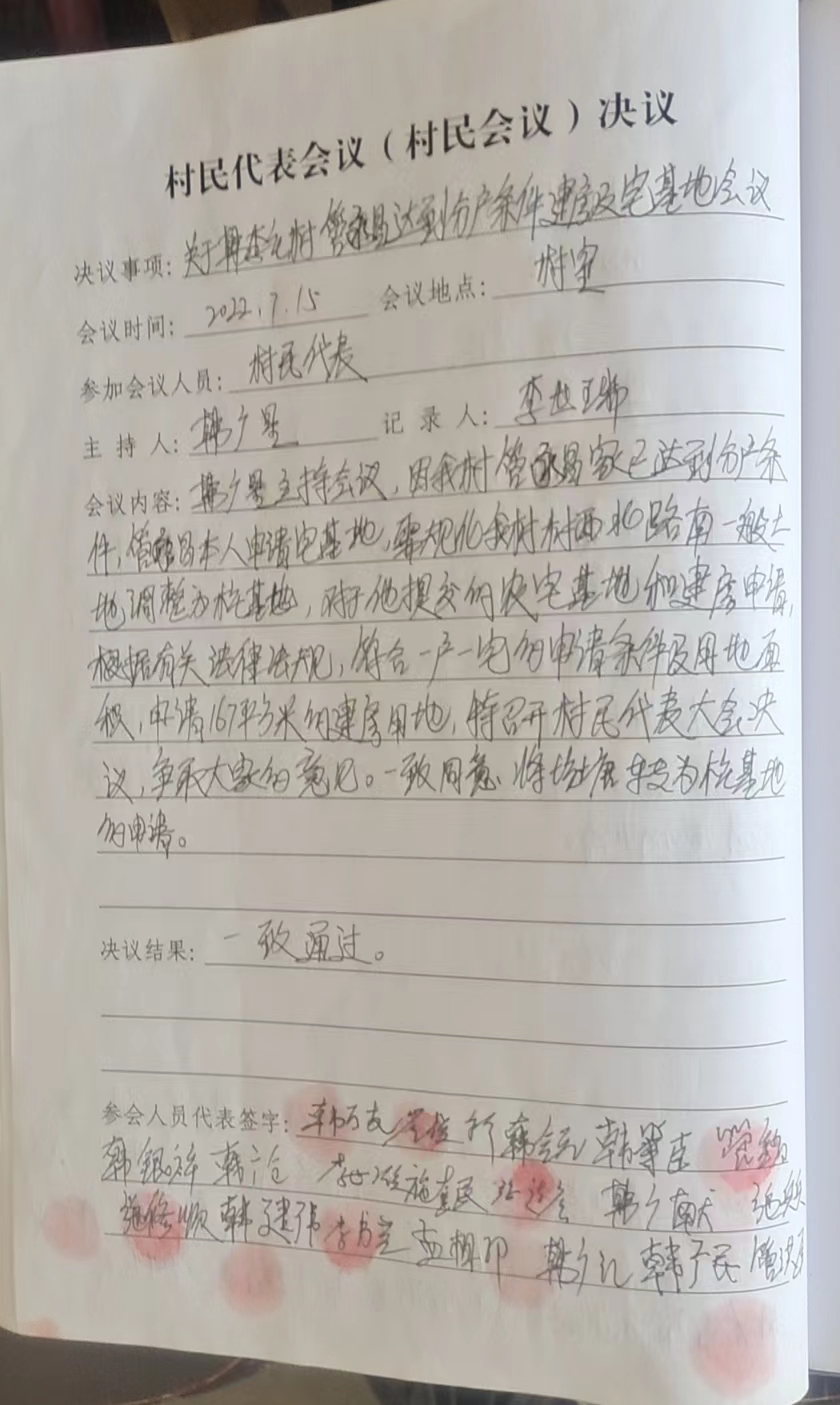 村民代表会议（村民会议）决议
决议事项：关于韩李元村管永昌达到分户条件建房及宅基地会议
会议时间：2022.7.15 会议地点：村室
参加会议人员：村民代表
主持人：韩广星 记录人：李世
会议内容：韩广星主持会议，因我村管永昌家已达到分户条
件，管永昌本人申请宅基地，需规化我村村西北路南一般土
地调整为宅基地，对于他提交的农宅基地和建房申请，
根据有关法律法规，符合一户一宅的申请条件及用地面
积，申请167平方米的建房用地，特召开村民代表大会决
议，争取大家的意见。一致同意 将 为 基地
的申请。
决议结果：一致通过。
参会人员代表签字：韩万友 韩
韩银祥 韩 韩广献
韩建伟 李 孟相印 韩广记 韩广民 管